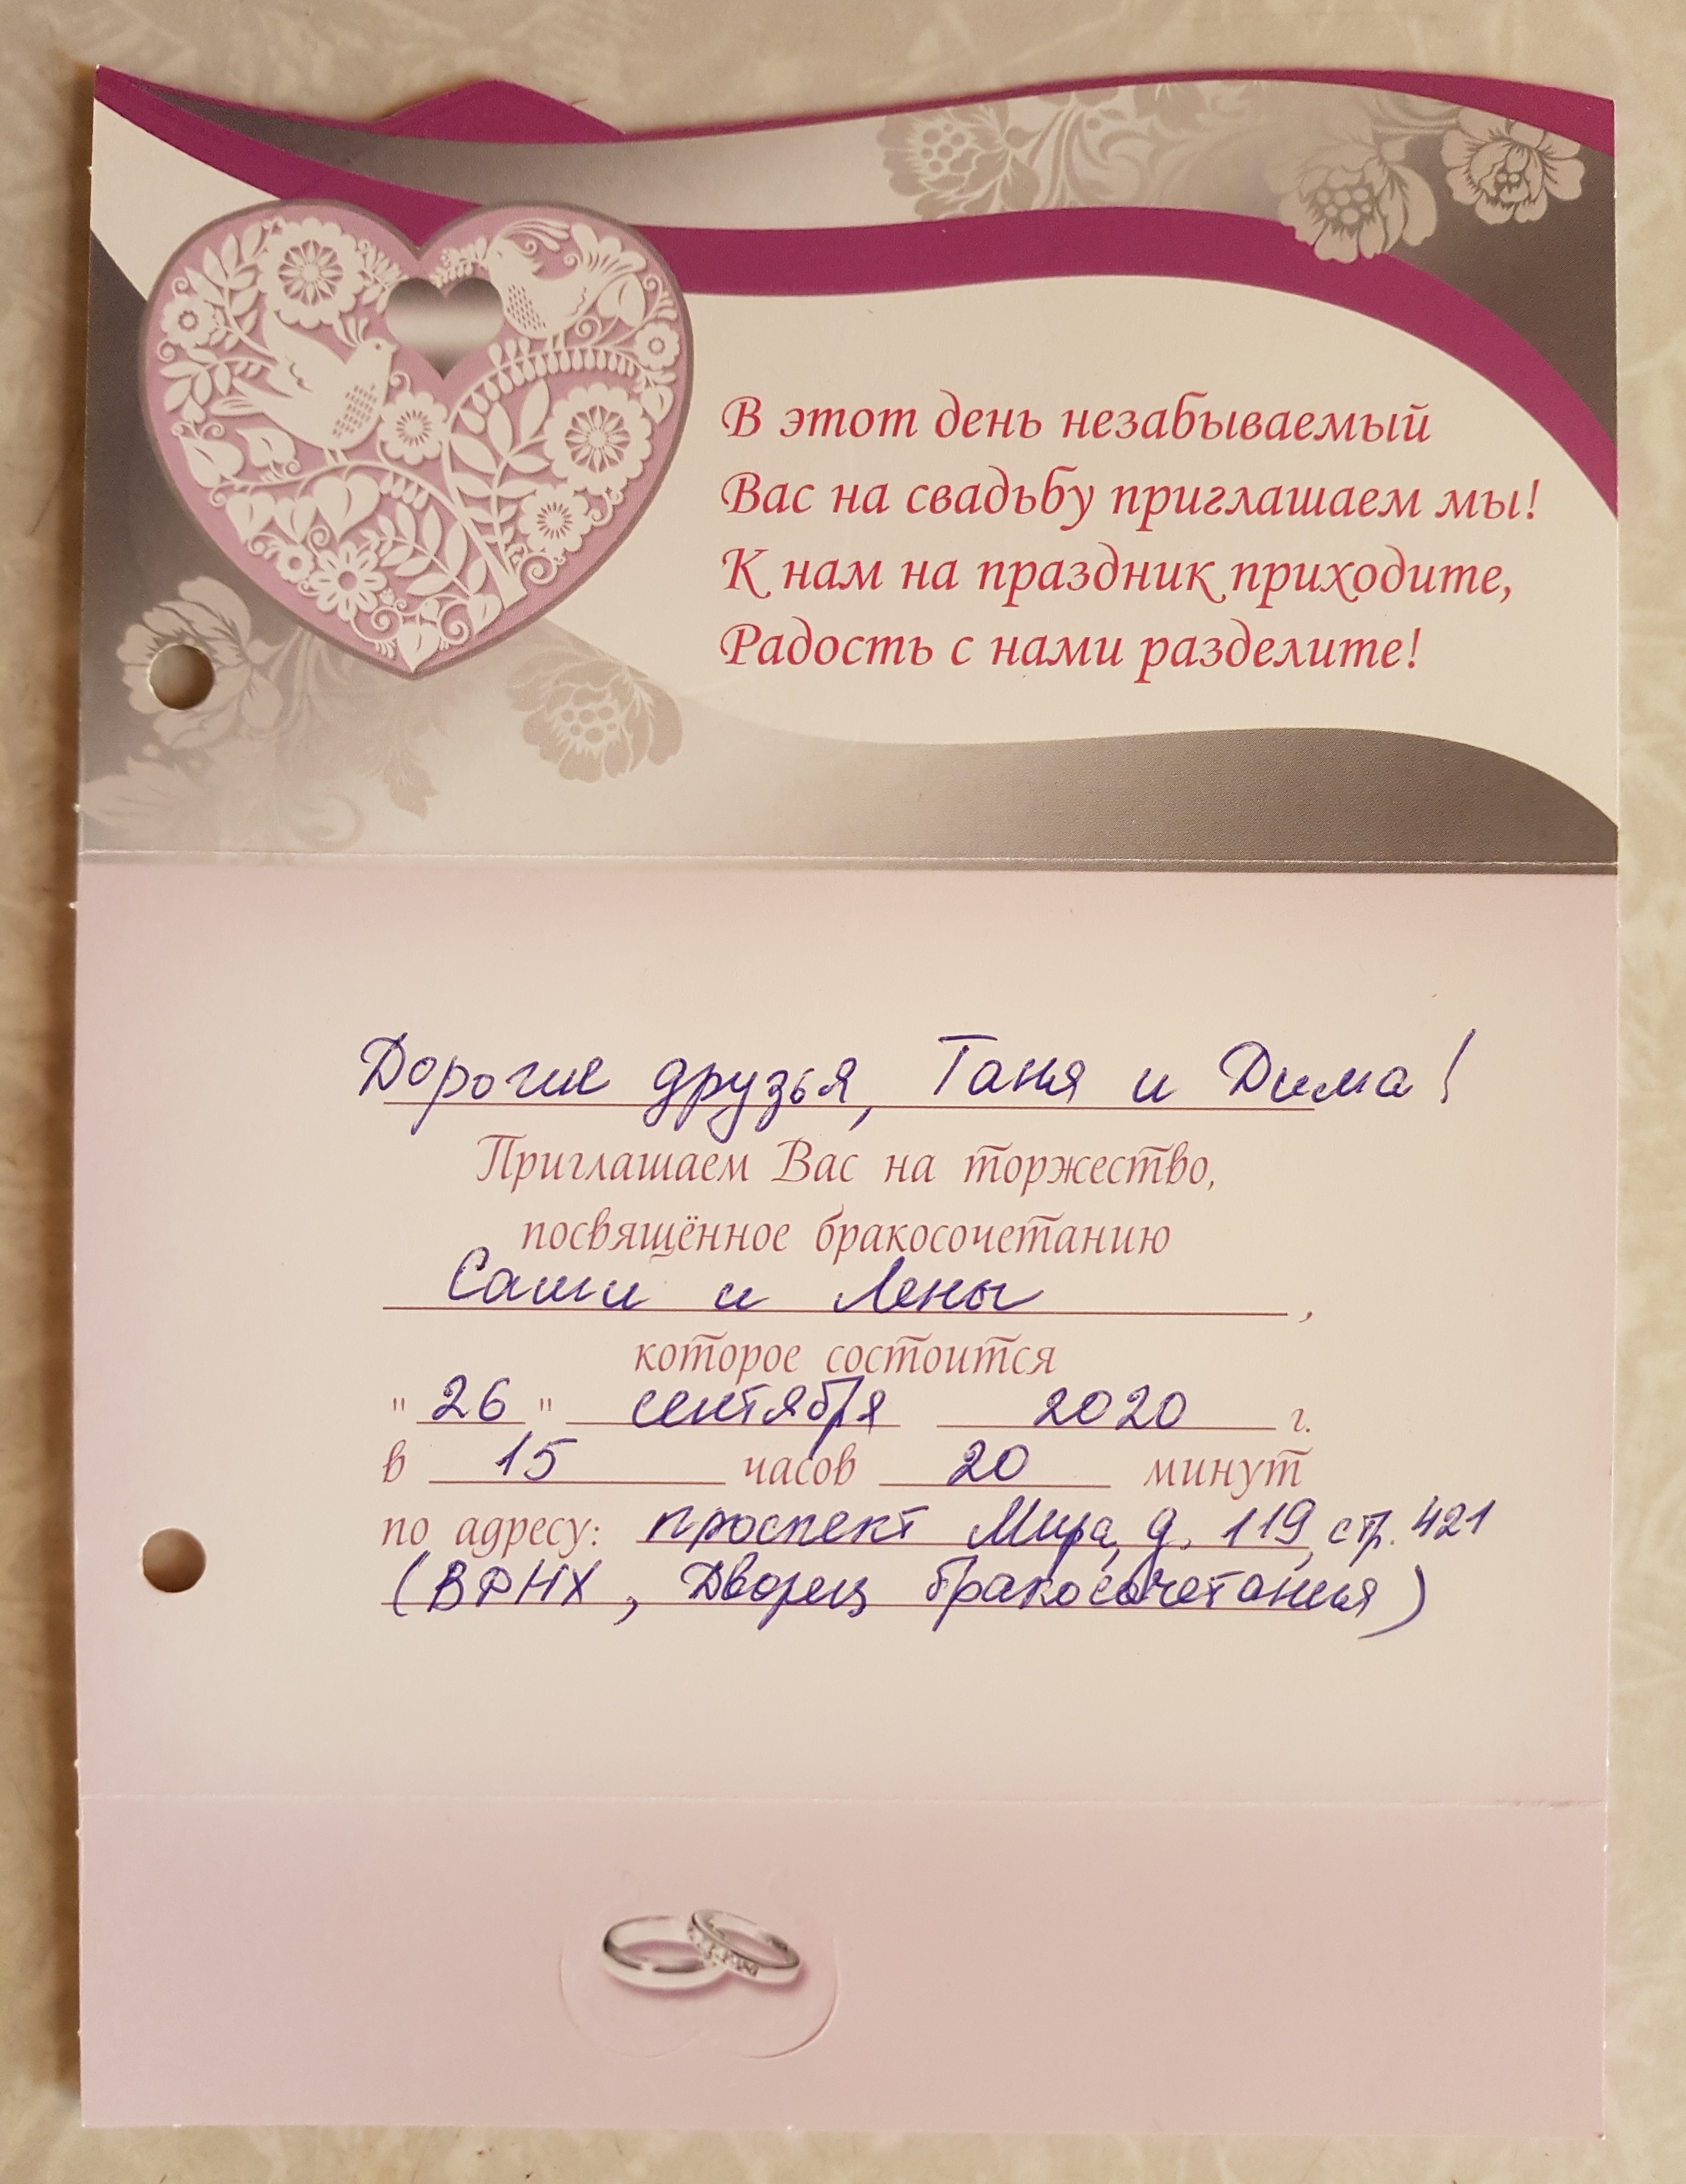 В этот день незабываемый
Вас на свадьбу приглашаем мы!
К нам на праздник приходите,
Радость с нами разделите!
Дорогие друзья, Таня и Дима!
Приглашаем Вас на торжество,
посвящённое бракосочетанию
Саши и Лены,
которое состоится
"26" сентября 2020 г.
в 15 часов 20 минут
по адресу: проспект Мира, д. 119, стр. 421
(ВДНХ, Дворец бракосочетания)